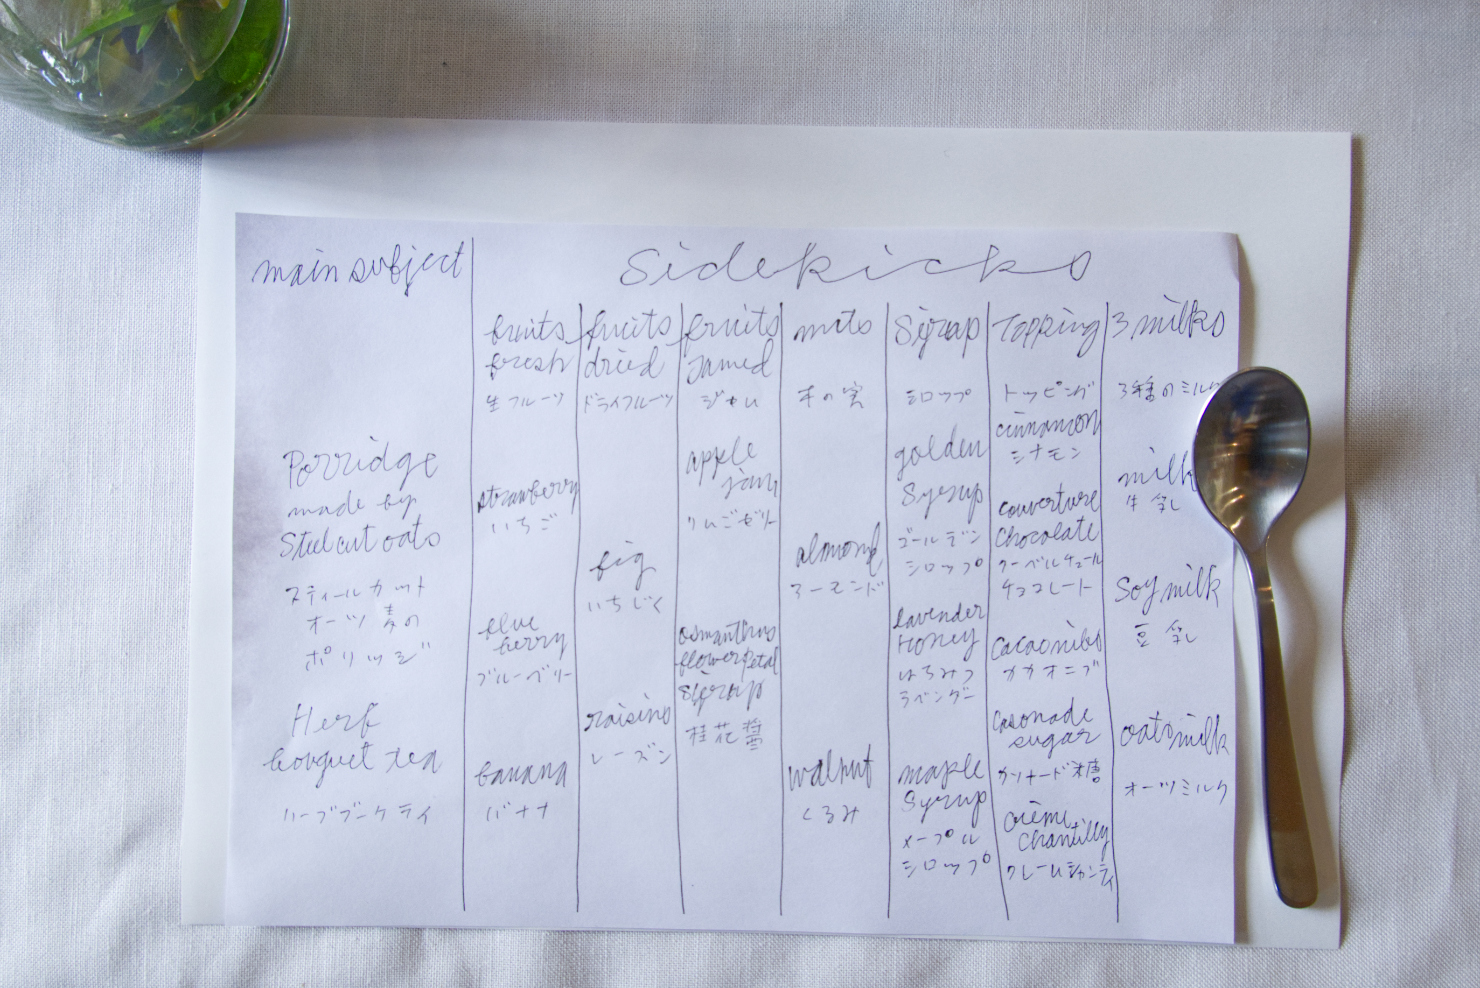 main subject
Sidekicks
Porridge
made by
Steel cut oats
スティールカット
オーツ麦の
ポリッジ
Herb
bouquet tea
ハーブブーケティ
fruits
fresh
生フルーツ
strawberry
いちご
blue
berry
ブルーベリー
banana
バナナ
fruits
dried
ドライフルーツ
fig
いちじく
raisins
レーズン
fruits
Jamed
ジャム
apple
jam
りんごゼリー
osmanthus
flower petal
syrup
桂花醤
nuts
木の実
almond
アーモンド
walnut
くるみ
Syrup
シロップ
golden
Syrup
ゴールデン
シロップ
lavender
Honey
はちみつ
ラベンダー
maple
Syrup
メープル
シロップ
Topping
トッピング
cinnamon
シナモン
couverture
chocolate
クーベルチュール
チョコレート
Cacaonibs
カカオニブ
Casonade
sugar
カソナード糖
crème
chantilly
クレームシャンティ
3 milks
3種のミルク
milk
牛乳
Soy milk
豆乳
oats milk
オーツミルク